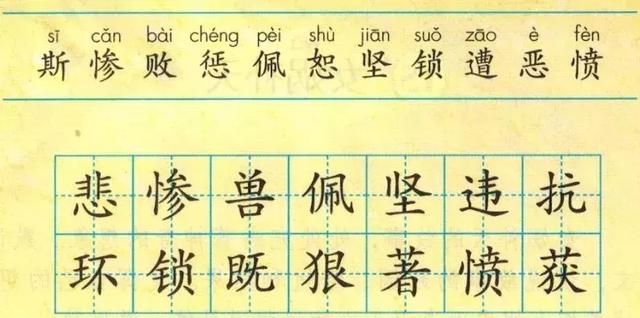 sī cǎn bài chéng pèi shù jiān suǒ zāo è fèn
斯 惨 败 惩 佩 恕 坚 锁 遭 恶 愤
悲 惨 兽 佩 坚 违 抗
环 锁 既 狠 著 愤 获